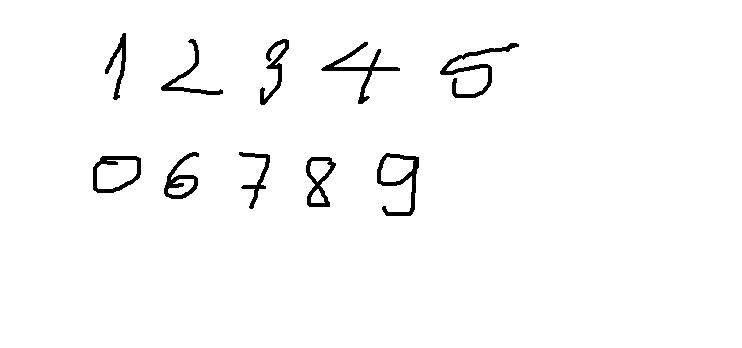 1 2 3 4 5
0 6 7 8 9